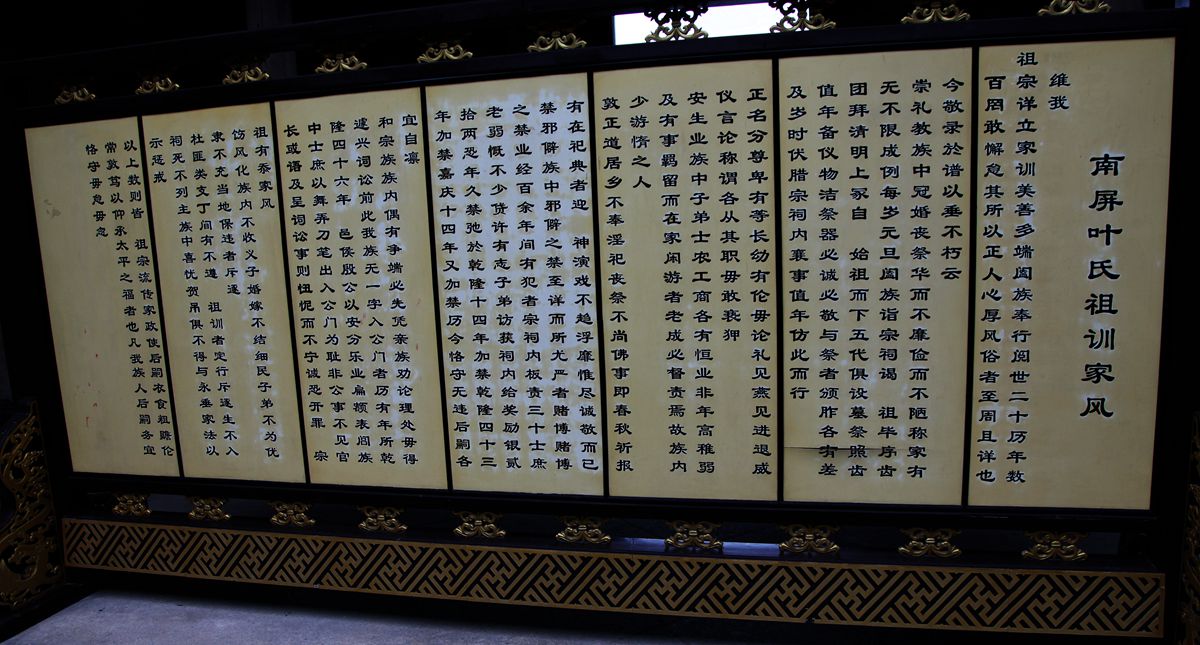 南屏叶氏祖训家风
维我
祖宗详立家训美善多端阖族奉行阅世二十历年数
百罔敢懈怠其所以正人心厚风俗者至周且详也
今敬录於谱以垂不朽云
崇礼教族中冠婚丧祭华而不廉俭而不陋称家有
无不限成例每岁元旦阖族诣宗祠谒 祖毕序齿
团拜清明上冢自 始祖而下五代俱设墓祭照齿
值年备仪物洁祭器必诚必敬与祭者颁胙各有差
及岁时伏腊宗祠内襄事值年仿此而行
正名分尊卑有等长幼有伦毋论礼见燕见进退威
仪言论称谓各从其职毋敢亵狎
安生业族中子弟士农工商各有恒业非年高稚弱
及有事羁留而在家闲游者老成必督责焉故族内
少游惰之人
敦正道居乡不奉淫祀丧祭不尚佛事即春秋祈报
有在祀典者迎 神演戏不趋浮靡惟尽诚敬而已
禁邪僻族中邪僻之禁至详而所尤严者赌博赌博
之禁业经百余年间有犯者宗祠内板责三十士庶
老弱慨不少贷许有志子弟访获祠内给奖励银贰
拾两恐年久禁弛於乾隆十四年加禁乾隆四十三
年加禁嘉庆十四年又加禁历今恪守无违后嗣各
宜自凛
和宗族族内偶有争端必先凭亲族劝论理处毋得
遽兴词讼前此我族无一字入公门者历有年所乾
隆四十六年 邑侯殷公以安分乐业扁额表闾族
中士庶以舞弄刀笔出入公门为耻非公事不见官
长或语及呈词讼事则忸怩而不宁诚恐开罪 宗
祖有忝家风
饬风化族内不收义子婚嫁不结细民子弟不为优
隶不充当地保违者斥逐
杜匪类支丁间有不遵 祖训者定行斥逐生不入
祠死不列主族中喜忧贺吊俱不得与永垂家法以
示惩戒
以上数则皆 祖宗流传家政使后嗣衣食粗赡伦
常敦笃以仰承太平之福者也凡我族人后嗣务宜
恪守毋怠毋忽